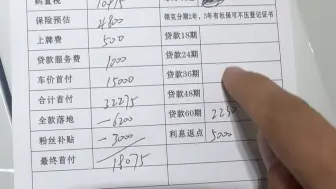 购置税 10475
保险预估 4800
领克分期2年，3年有社保可不压登记证书
上牌费 500
贷款18期
贷款服务费 1000
贷款24期
车价首付 15000
贷款36期
合计首付 32275
贷款48期
全款落地 -6200
贷款60期 2230
粉丝补贴 -3000
利息返点 5000
最终首付 18075